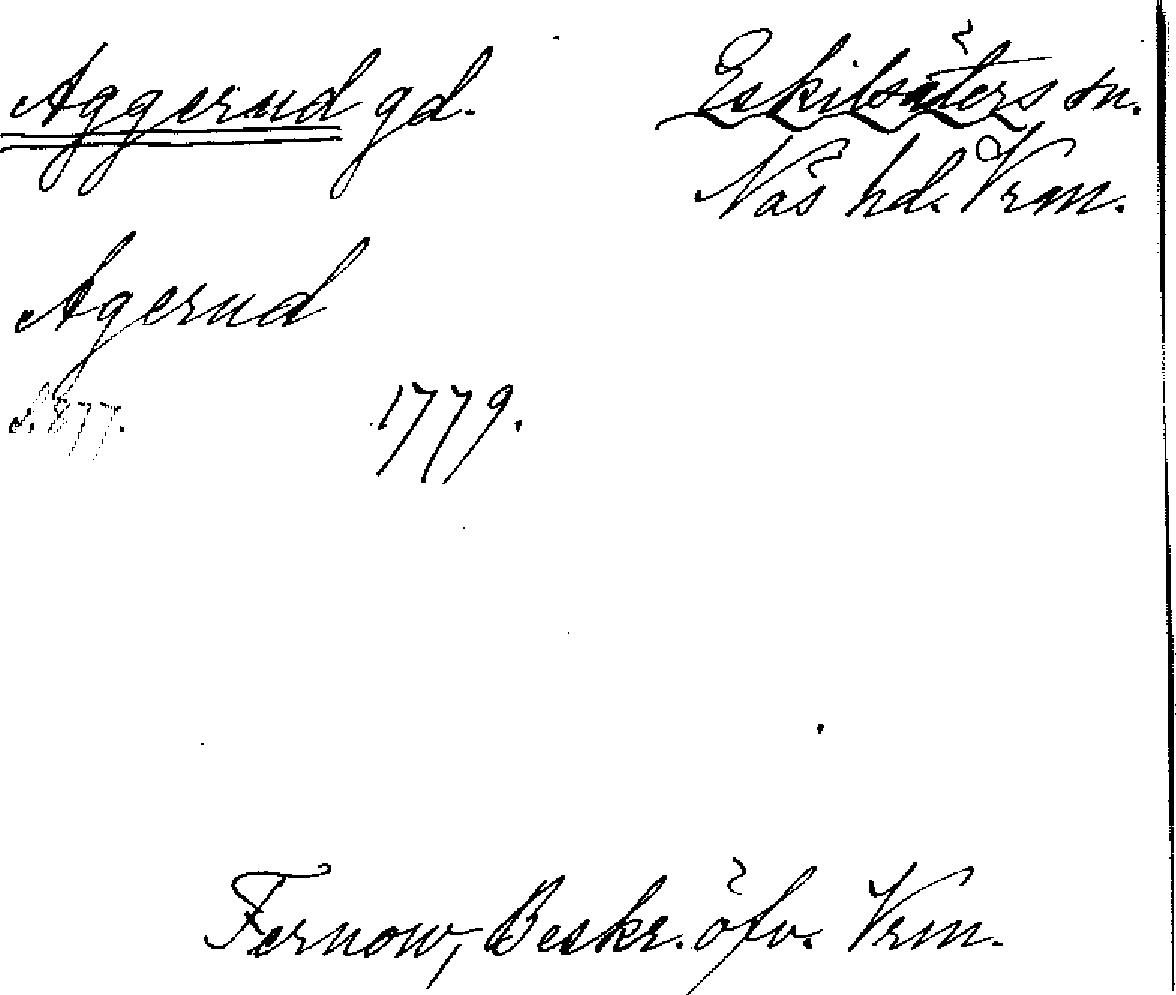 Aggerud gd.
Eskilsäters sn.
Näs hd. Vrm.
Agerud
s. 877. 1779.
Fernow, Beskr. öfv. Vrm.